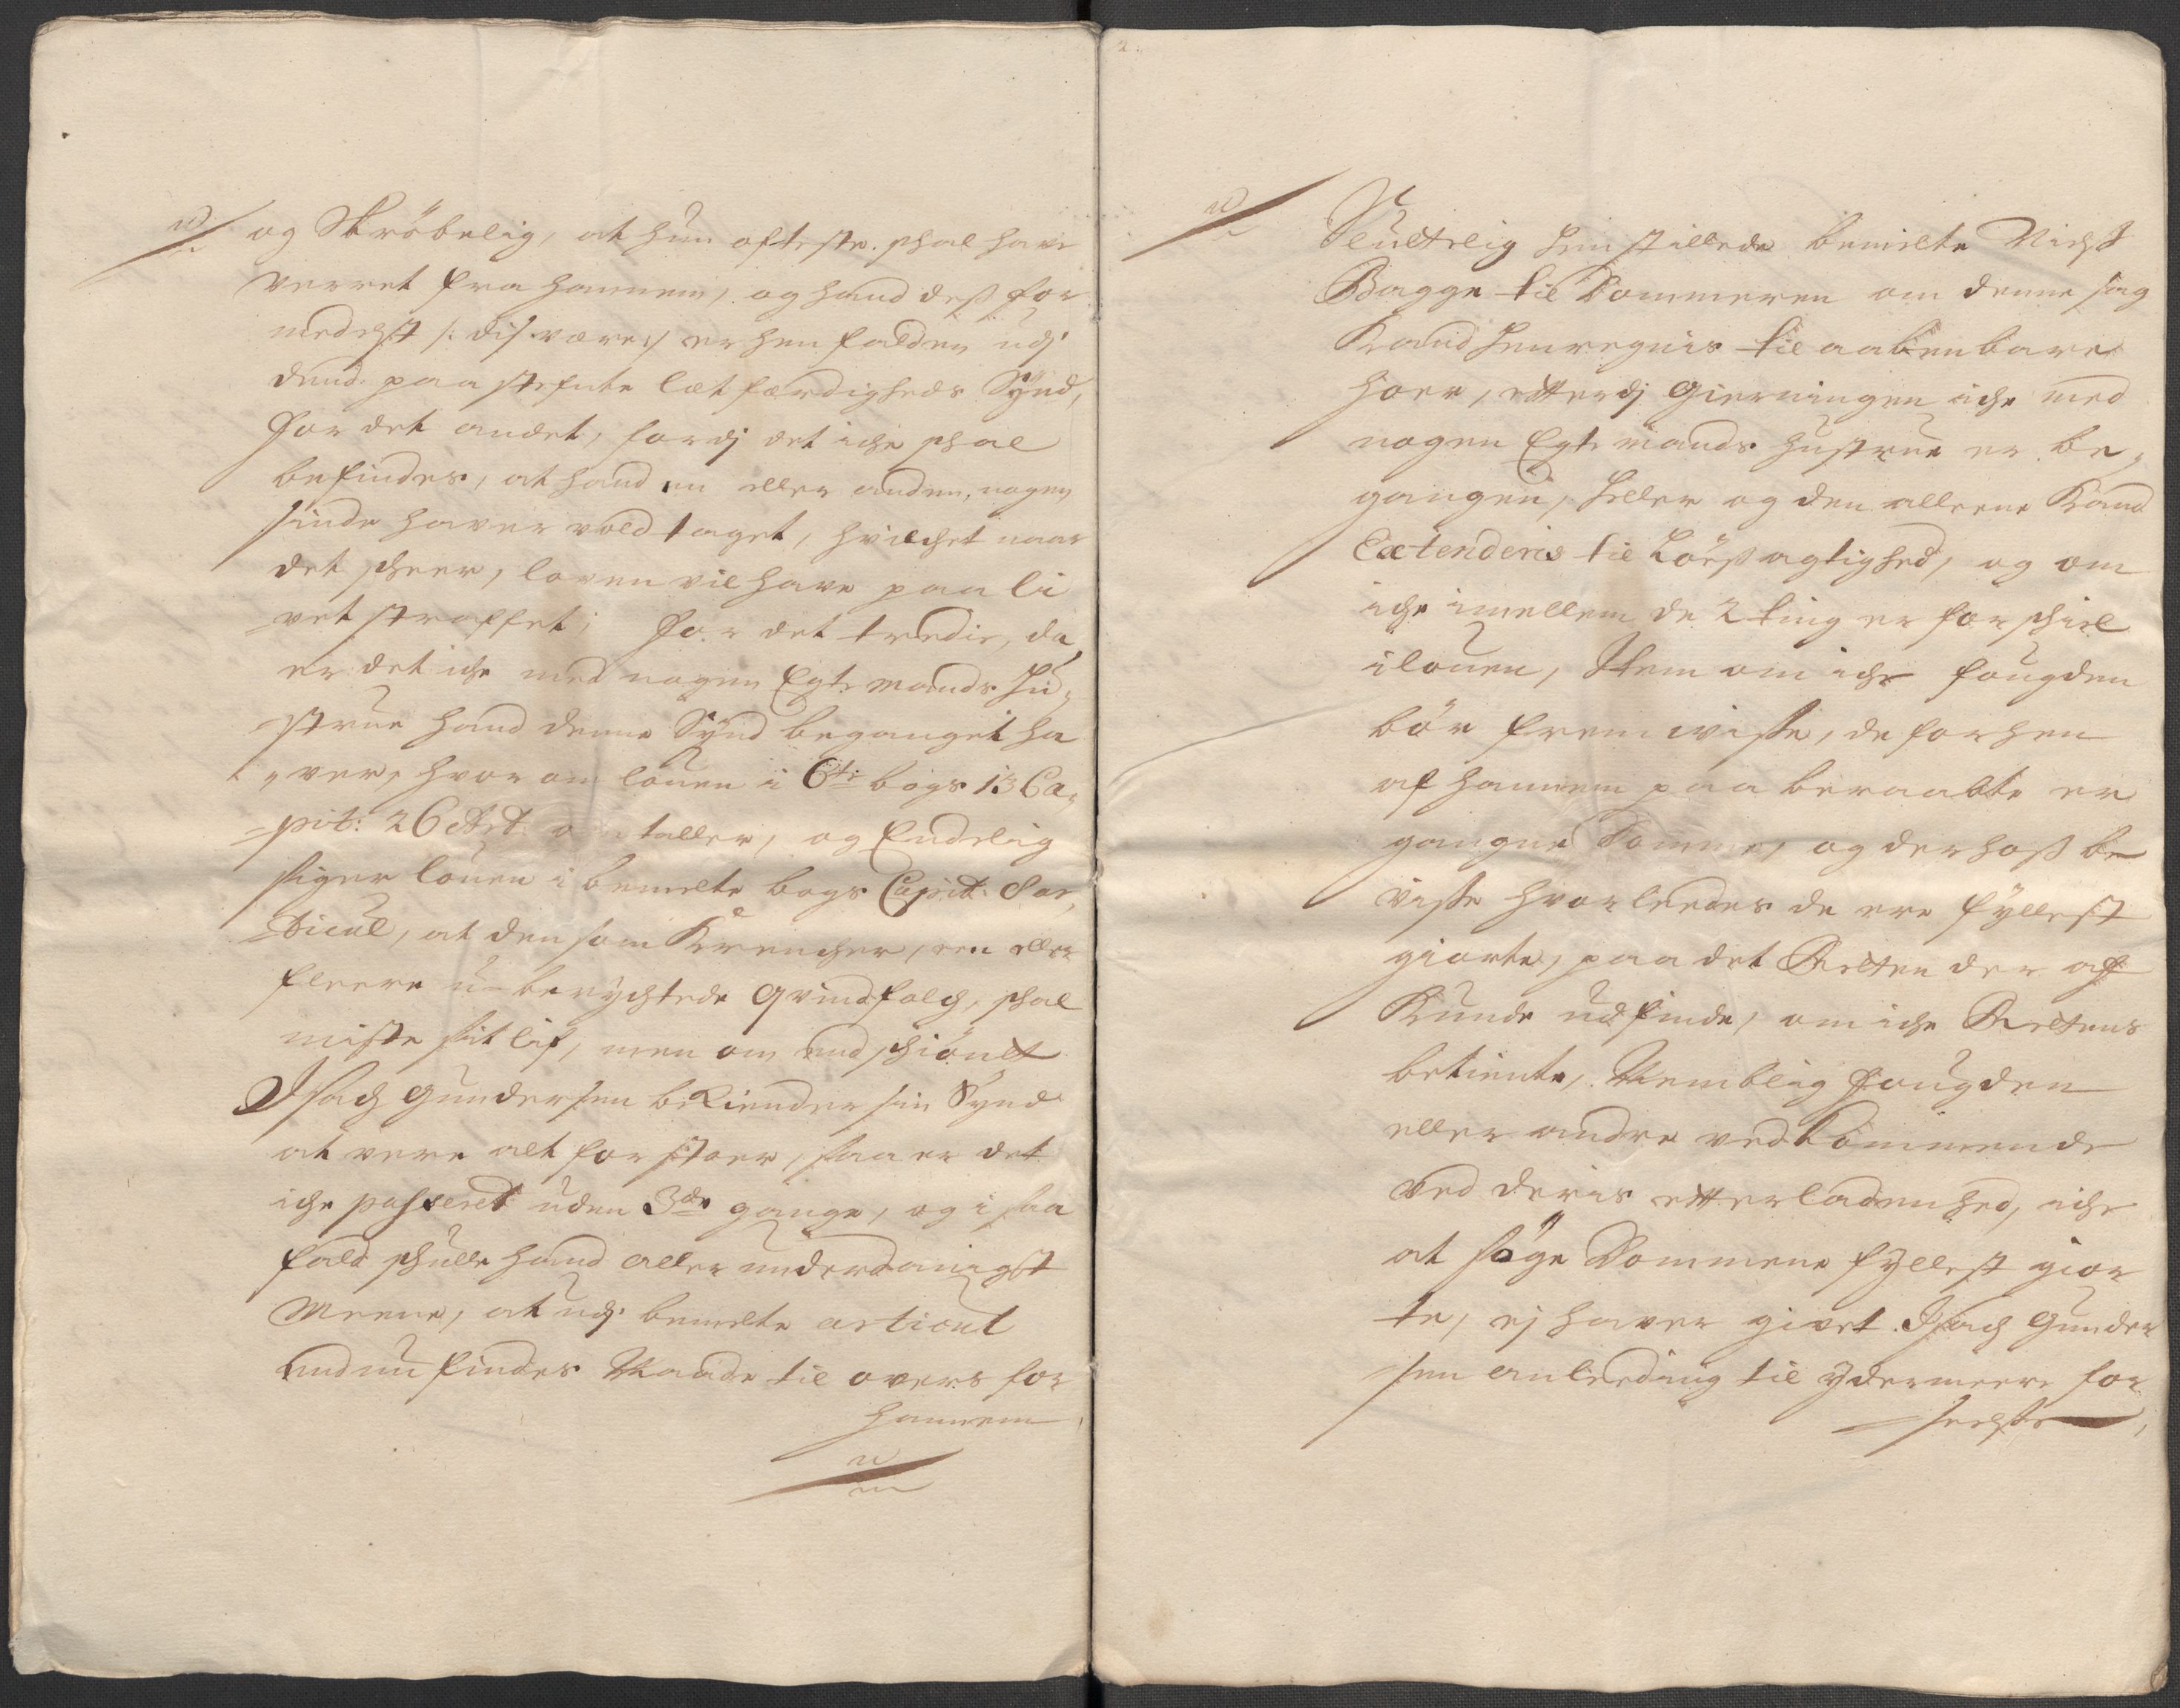 og Skröbelig, at hun ofteste. schal have
verret fra hannem, og hand dess for
medelst /: diswære :/ er henfalden udj
dend paa stefnte letfærdigheds Synd,
for det andet, fordj det iche schal
befindes, at hand en eller anden, nogen
sinde haver voldtaget, hvilchet naar
det scheer, loven vil have paa li
vet straffet; for det tredie, da
er det iche med nogen Egtemands Hu,
strue hand denne Synd beganget ha
ver, hvorom loven i 6te bogs 13 Ca,
pit: 26 Art: omtaller, og Endelig
siger loven i bemelte bogs Capit: Sar,
ticul, at den som Krencher, een eller
fleere u-berychtede Qvindfolch, schal
miste sit lif, men om endschiönt
Isach Gundersen bekiender sin Synd
at vere alt for stoer, saa er det
iche passeret uden 3de gange, og i saa
fald schulle hand allerunderdanigst
Meene, at udj bemelte articul
end nu findes Naade til overs for
hannem,
Sluttelig henstillede bemelte Vichst
Bagge til Dommeren om denne sag
Kand henregnis til aabenbare
hoer, efterdj Gierningen iche med
nogen Egtemands hustrue er be,
gangen, heller og den alleene Kand
Extenderis til Lössagtighed, og om
iche imellem de 2 ting er forschiel
i loven, Item om iche fougden
bör fremvisse, de forhen
af hannem paaberaabte er
gangne Domme, og derhoss be
visse hvorleedes de ere fyllest
giorte, paa det Retten der af
Kunde udfinde, om iche Rettens
betiente, Nemblig fougden
eller andre vedkommende
ved deris efterladenhed, iche
at söge Dommene fyllest gior
te, ej haver givet Isach Gunder
sen anleeding til ydermeere for
seelse,